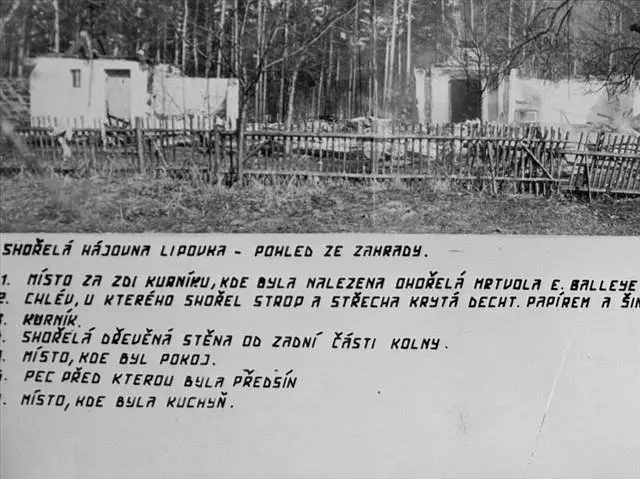 SHOŘELÁ HÁJOVNA LIPOVKA - POHLED ZE ZAHRADY.
1. MÍSTO ZA ZDI KURNÍKU, KDE BYLA NALEZENA OHOŘELÁ MRTVOLA E. BALLEYE
2. CHLÉV, U KTERÉHO SHOŘEL STROP A STŘECHA KRYTÁ DECHT. PAPÍREM A ŠIN
3. KURNÍK.
SHOŘELÁ DŘEVĚNÁ STĚNA OD ZADNÍ ČÁSTI KOLNY.
MÍSTO, KDE BYL POKOJ.
PEC PŘED KTEROU BYLA PŘEDSÍN
MÍSTO, KDE BYLA KUCHYŇ.